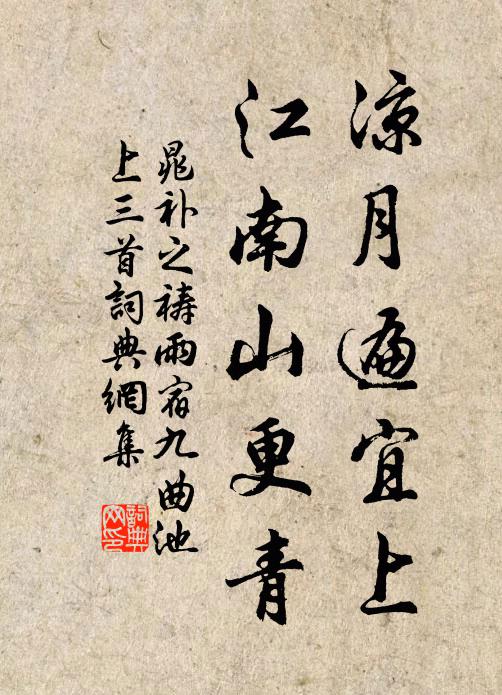 凉月遍宜上
江南山更青
晁补之祷雨宿九曲池
上三首詞典網集
詞典
网印